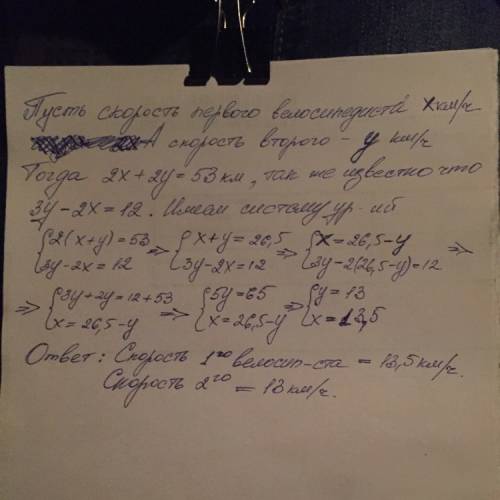 Пусть скорость первого велосипедиста x км/ч
А скорость второго - y км/ч
Тогда 2x+2y=53 км, так же известно что
3y-2x=12. Имеем систему ур-ий
{2(x+y)=53 {x+y=26,5 {x=26,5-y
{3y-2x=12 => {3y-2x=12 => {3y-2(26,5-y)=12 =>
=> {3y+2y=12+53 => {5y=65 => {y=13
{x=26,5-y {x=26,5-y {x=13,5
Ответ: Скорость 1го велосип-ста = 13,5 км/ч.
Скорость 2го = 13 км/ч.